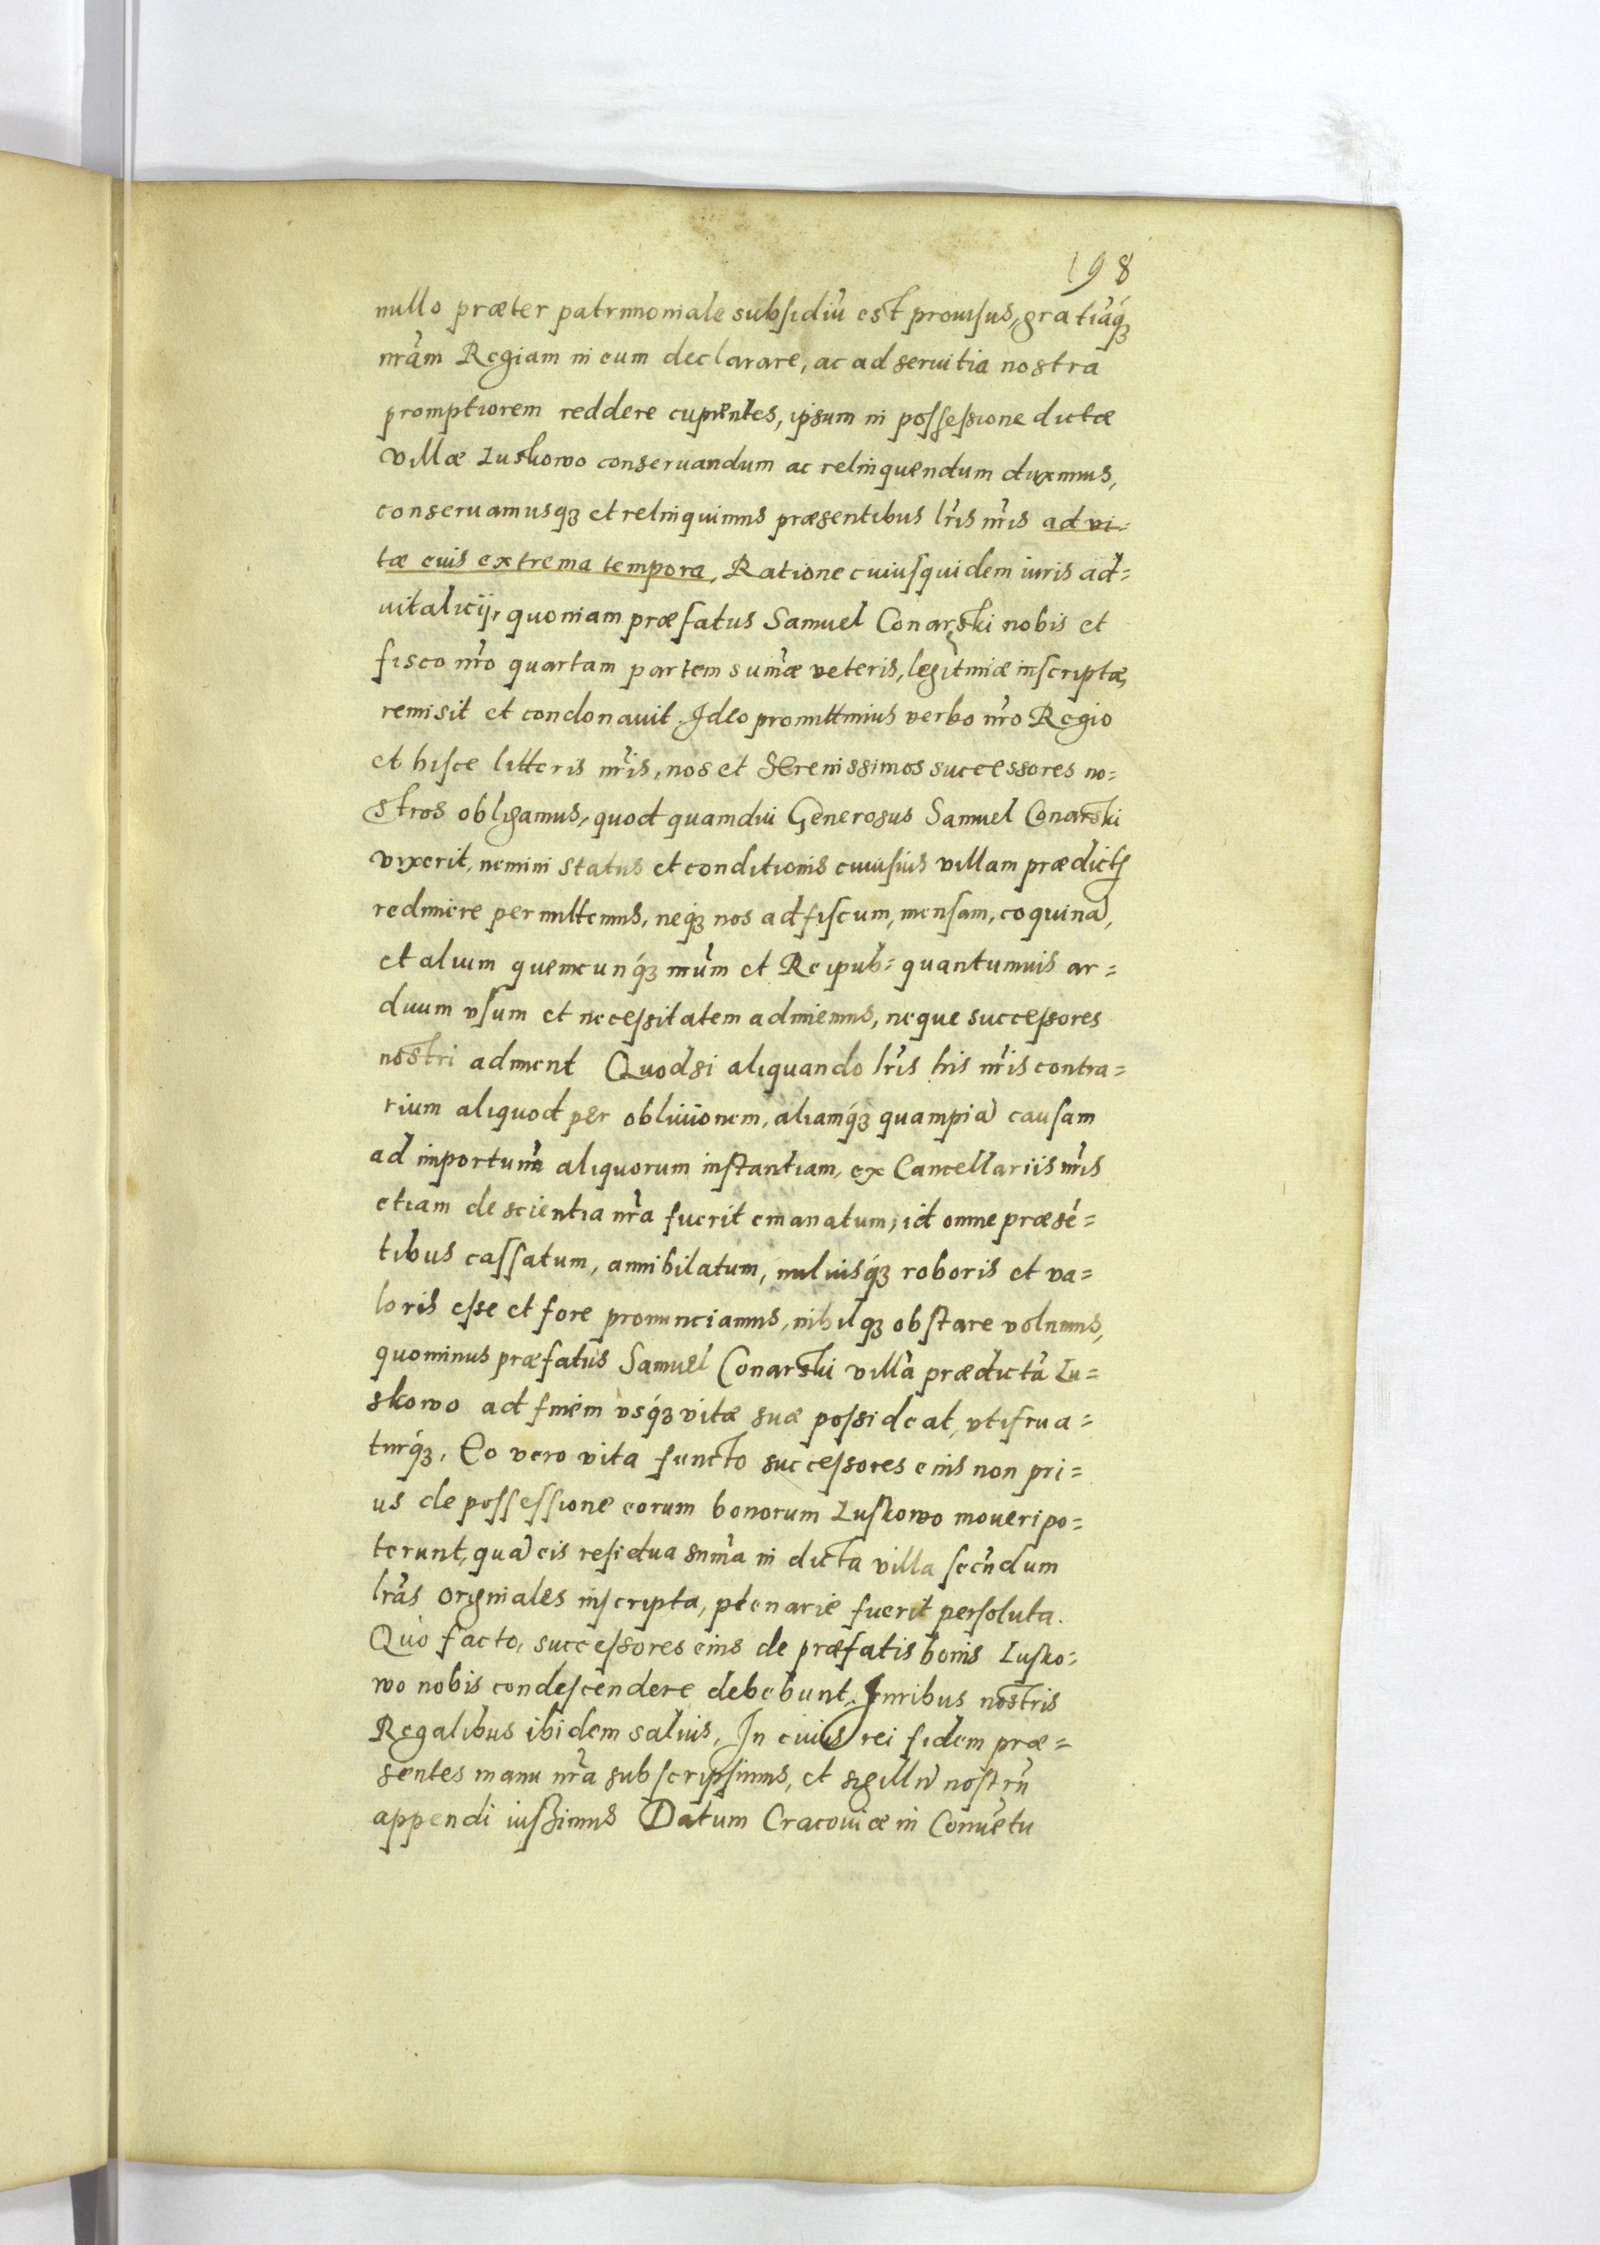 198
nullo præter patrimoniale subsidiũ est prouisus, gratiãq́ꝫ
nrãm Regiam in eum declarare, ac ad seruitia nostra
promptiorem reddere cupientes, ipsum in possessione dictæ
villæ Luskowo conseruandum ac relinquendum duximus,
conseruamusqꝫ et relinquimus præsentibus lris nris ad vi=
tæ eius extrema tempora, Ratione cuiusquidem iuris ad=
uitalicij, quoniam præfatus Samuel Conarski nobis et
fisco nro quartam partem sumæ veteris, legitimæ inscriptæ,
remisit et condonauit. Ideo promittimus verbo nro Regio
et hisce litteris nris, nos et Serenissimos successores no=
stros obligamus, quod quamdiu Generosus Samuel Conarski
vixerit, nemini status et conditionis cuiusuis villam prædictã
redimere permittemus, neqꝫ nos ad fiscum, mensam, coquinã,
et alium quemcunq́ꝫ nrum et Reipub= quantumuis ar=
duum vsum et necessitatem adimemus, neque successores
nostri adiment Quodsi aliquando lris his nris contra=
rium aliquod per obliuionem, aliamq́ꝫ quampiã causam
ad importunã aliquorum instantiam, ex Cancellariis nris
etiam de scientia nra fuerit emanatum, id omne præsé=
tibus cassatum, annihilatum, nulliusq́ꝫ roboris et va=
loris esse et fore pronunciamus, nihilqꝫ obstare volumus,
quominus præfatus Samuel Conarski villã prædictã Lu=
skowo ad finem vsq́ꝫ vitæ suæ possideat, vtifrua=
turq́ꝫ, Eo vero vita functo successores eius non pri=
us de possessione eorum bonorum Luskowo moueri po=
terunt, quã eis residua suma in dicta villa secũdum
lras originales inscripta, plenarie fuerit persoluta.
Quò facto, successores eius de præfatis bonis Lusko=
wo nobis condescendere debebunt, Iuribus nostris
Regalibus ibidem saluis, In cuius rei fidem præ=
sentes manu nra subscripsimus, et sigillũ nostrũ
appendi iussimus Datum Cracouiæ in Conuẽtu